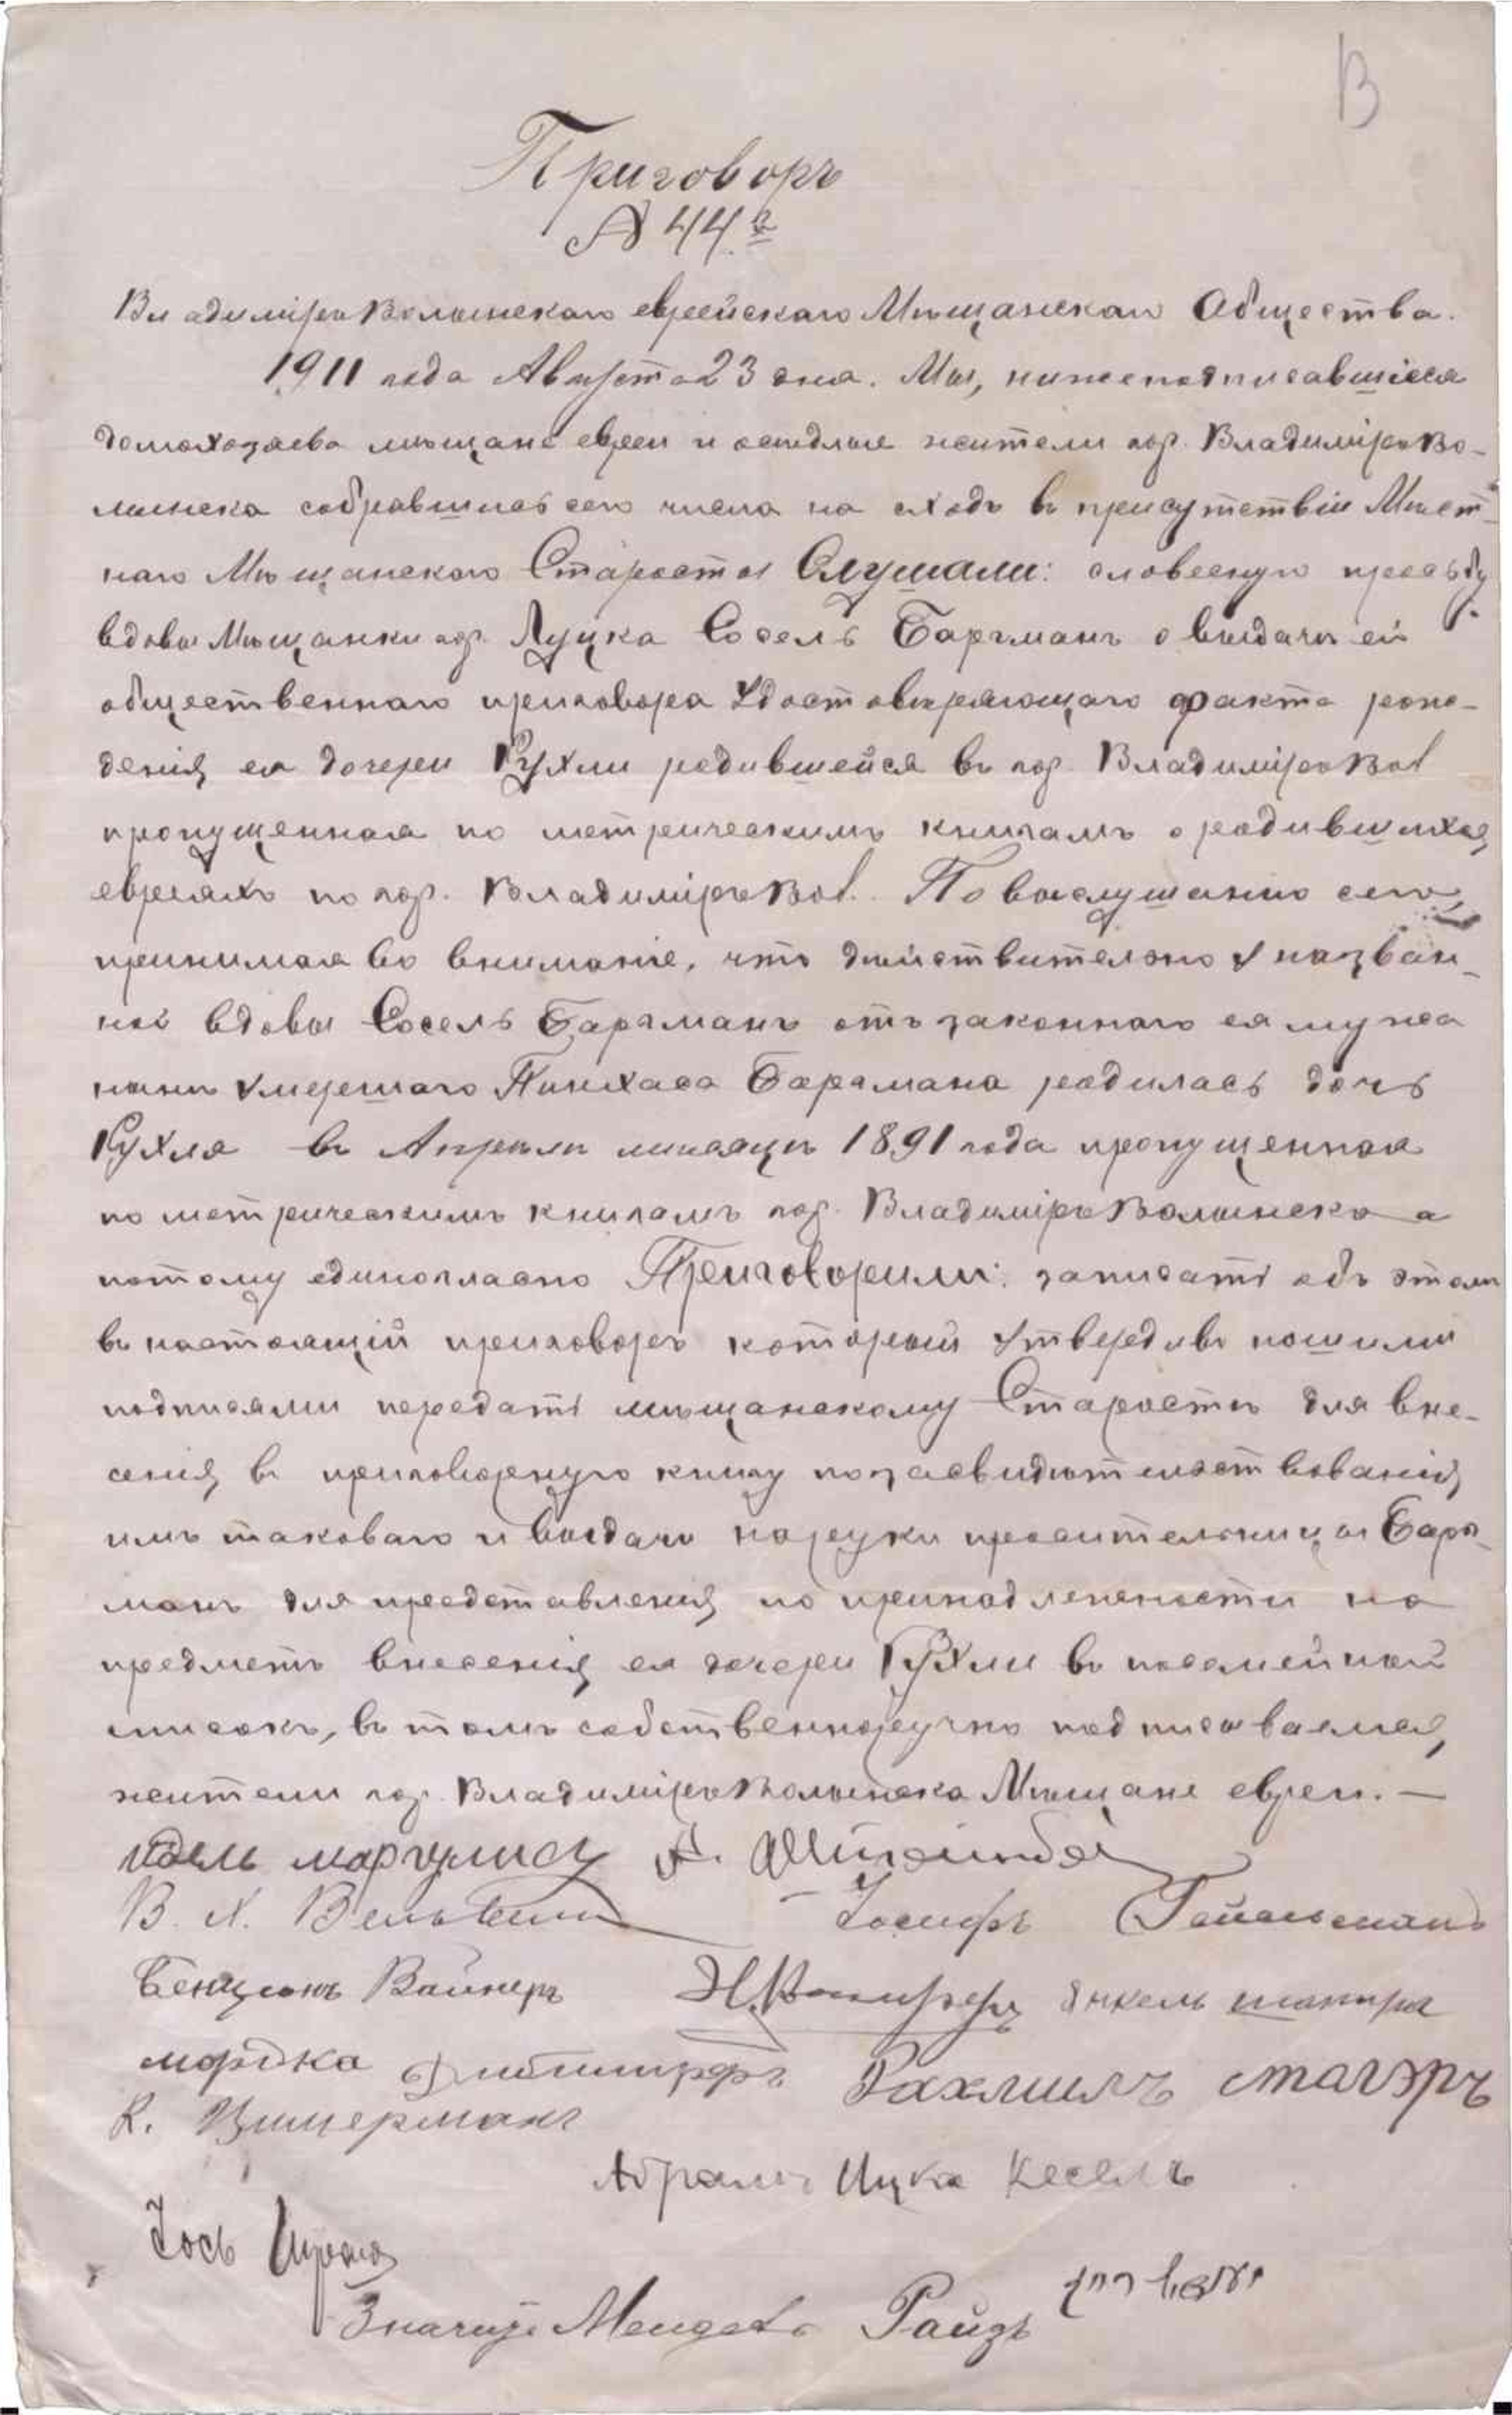 В
Приговоръ
№ 44й
ВладиміръВолынскаго еврейскаго Мѣщанскаго Общества.
1911 года Августа 23 дня. Мы, нижеподписавшіеся
домохозяева мѣщане евреи и оседлые жители гор. ВладиміръВо-
лынска собравшись сего числа на сходъ въ присутствіи Мѣст-
наго Мѣщанскаго Старосты Слушали: словесную просьбу
вдовы Мѣщанки гор. Луцка Сосель Баргманъ о выдачѣ ей
общественнаго приговора удостовѣряющаго факта рож-
денія ея дочери Рухли родившейся въ гор. ВладиміръВол
пропущенная по метрическимъ книгамъ о родившихся
евреяхъ по гор. ВладиміръВол. По выслушанію сего,
принимая во вниманіе, что дѣйствительно у назван-
ной вдовы Сосель Баргманъ отъ законнаго ея мужа
нынѣ умершаго Пинхаса Баргмана родилась дочь
Рухля въ Апрѣлѣ мѣсяцѣ 1891 года пропущенная
по метрическимъ книгамъ гор. ВладиміръВолынска а
потому единогласно Приговорили: записать объ этомъ
въ настоящій приговоръ который утвердивъ нашими
подписями передать мѣщанскому Старостѣ для вне-
сенія въ приговорную книгу позасвидѣтельствованія
имъ таковаго и выдачи наруки просительницы Барг-
манъ для представленія по принадлежности на
предметъ внесенія ея дочери Рухли въ посемейной
списокъ, въ томъ собственноручно подписываемся,
жители гор. ВладиміръВолынска Мѣщане евреи. —
идель маргулисъ А.
В. Х. Іосифъ
Бенціонъ Вайнеръ Янкель шапира
мордка Рахмилъ стагэръ
К. Цимерманъ
Абрамъ Ицка Кесель
Іось
Мендель Райзъ